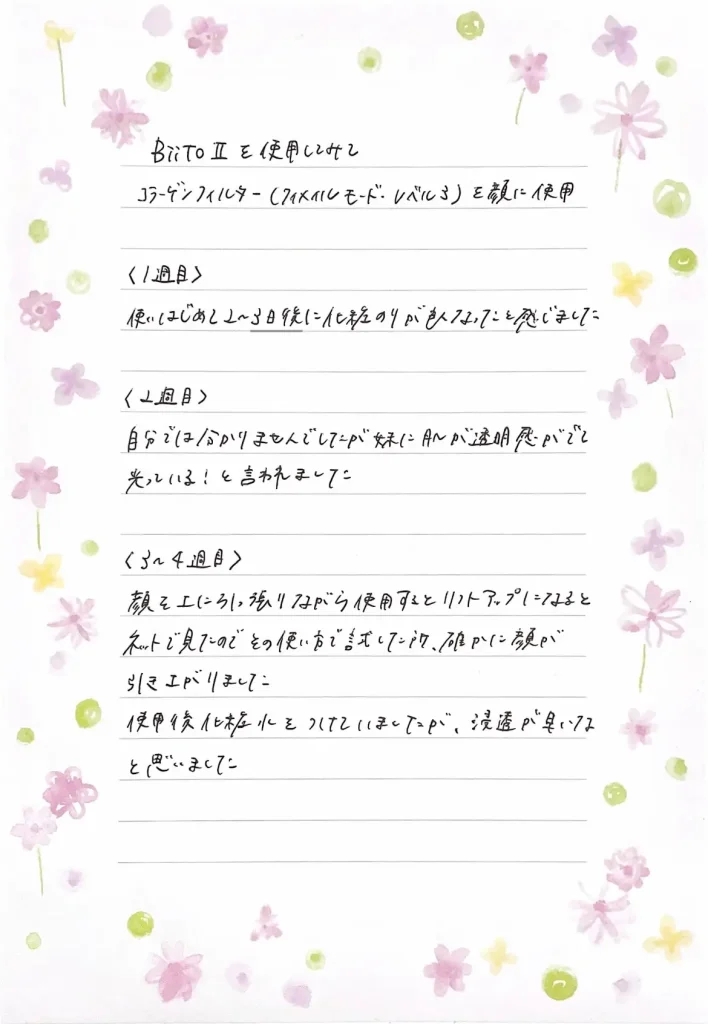 BiiTO II を使用してみて
コラーゲンフィルター(フィメイルモード・レベル3)を顔に使用
〈1週目〉
使いはじめて2~3日後に化粧のりが良くなったと感じました
〈2週目〉
自分では分かりませんでしたが妹に肌が透明感がでて
光っている!と言われました
〈3~4週目〉
顔を上に引っ張りながら使用するとリフトアップになると
ネットで見たのでその使い方で試した所、確かに顔が
引き上がりました
使用後化粧水をつけていましたが、浸透が良いな
と思いました